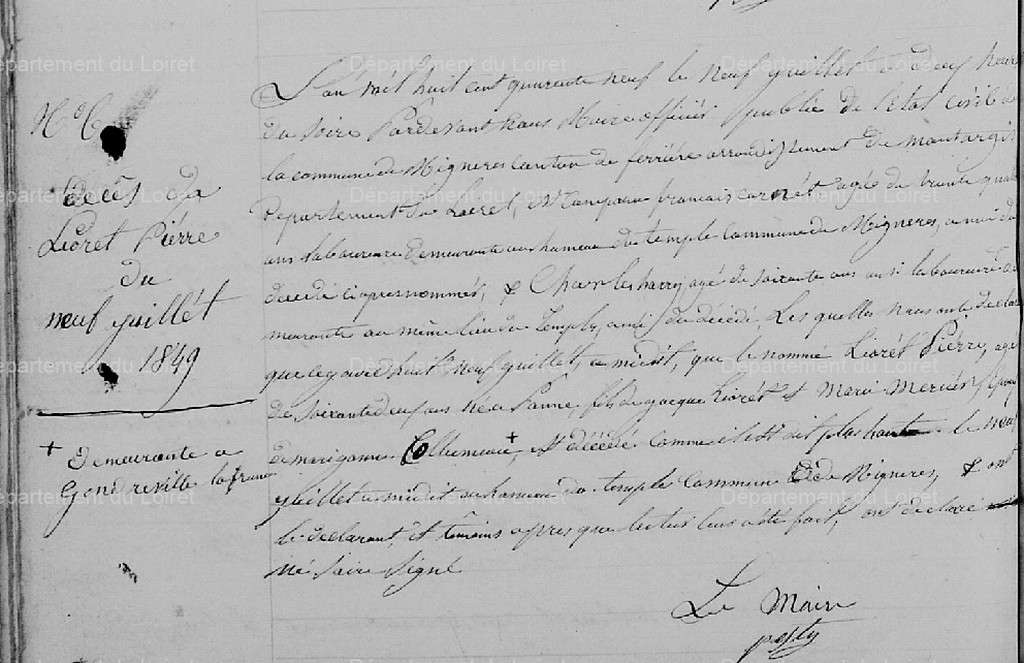 N° 6
décês du
Lioret Pierre
du
neuf yuillét
1849
+ Demeurante a
Gondreville la franc
L'an mil huit cent quarente neuf le neuf yuillet a deux heur
du soire Pardevant Nous Maire officiés publie de l'état civile de
la commune de Migneres canton de ferriére arrondissement de montargis
Département du Loiret, est comparu francais carnét agé de trente quat
ans laboureure Demeurante au hameau du temple commune de Migneres, ami du
décédé ciapres nommés, & Charles harry agé de soixante ans ausi laboureure de
meurante au même lieu du Temple, ami du décédé. Les quelles nous ont déclar
que le jourd huit neuf yuillet, a midit, que le nommé Liorét Piérre, agé
de soixante deux ans né a Panne fils de jacque Liorét et Marie Meriér, epou
de marianne Collumeau +, est décédé comme il est dit plus haut le neuf
yuillet a midit au hameau du temple commune de Migneres, & ont
le déclarant, et témoins apres que lectus leurs a été fait, ont declaré
né savire signé
Le Maire
Pesty
Département du Loiret